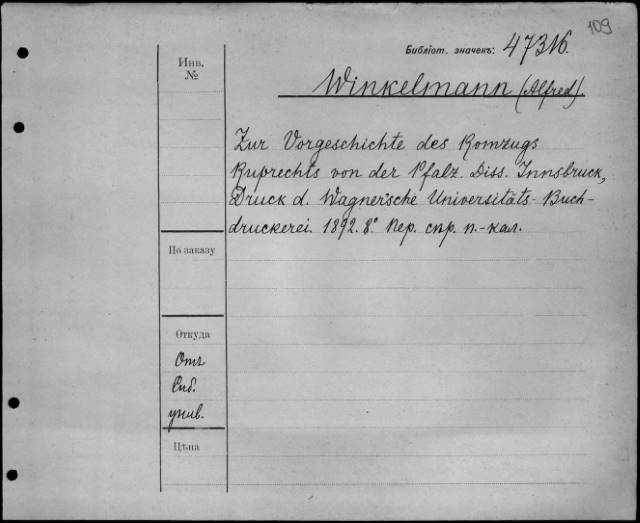 109
Библіот. значекъ: 47316.
Инв.
№
Winkelmann (Alfred).
Zur Vorgeschichte des Romzugs
Ruprechts von der Pfalz. Diss. Innsbruck,
Druck d. Wagner'sche Universitäts-Buch-
druckerei. 1892. 8° Пер. спр. п.-кал.
По заказу
Откуда
Отъ
Спб.
унив.
Цѣна